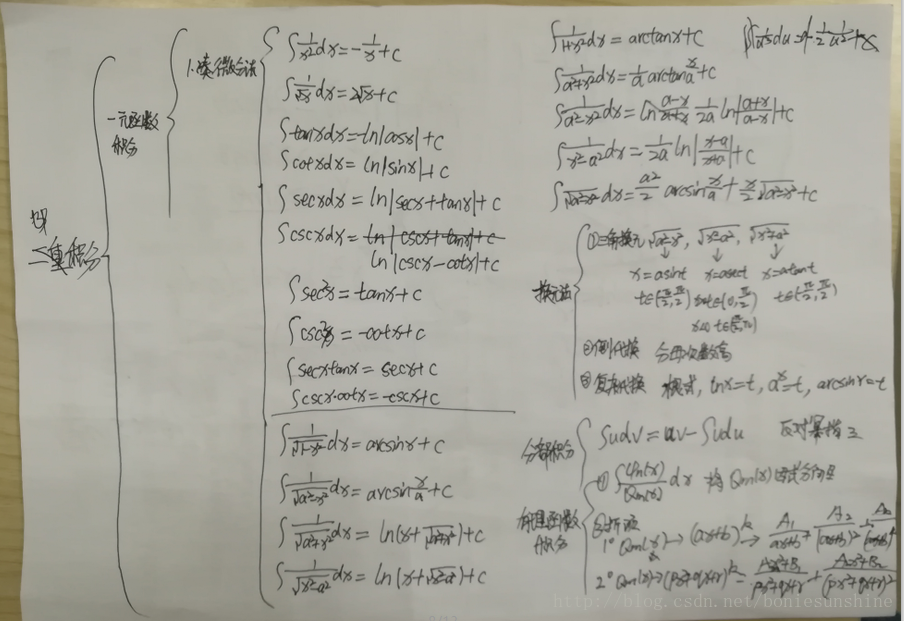 三重积分
一元函数
积分
1.凑微分法
∫1/x² dx = -1/x + C
∫1/√x dx = 2√x + C
∫tanxdx = -ln|cosx| + C
∫cotxdx = ln|sinx| + C
∫secxdx = ln|secx+tanx| + C
∫cscxdx = ln|cscx+tanx|+C
ln|cscx-cotx|+C
∫sec²x = tanx+C
∫csc²x = -cotx+C
∫secxtanx = secx+C
∫cscx·cotx = -cscx+C
∫1/√(1-x²) dx = arcsinx + C
∫1/√(a²-x²) dx = arcsin x/a + C
∫1/√(a²+x²) dx = ln(x+√(a²+x²))+C
∫1/√(x²-a²) dx = ln(x+√(x²-a²))+C
∫1/(1+x²) dx = arctanx+C
∫1/(a²+x²) dx = 1/a arctan x/a + C
∫1/(a²-x²) dx = ln (a-x)/(a+x) 1/2a ln|(a+x)/(a-x)|+C
∫1/(x²-a²) dx = 1/2a ln|(x-a)/(x+a)|+C
∫√(a²-x²) dx = a²/2 arcsin x/a + x/2 √(a²-x²)+C
换元法
①三角换元 √(a²-x²), √(x²-a²), √(x²+a²)
↓ ↓ ↓
x=asint x=asect x=atant
t∈(-π/2,π/2) t∈(0,π/2) t∈(-π/2,π/2)
x<0 t∈(π/2,π)
②倒代换 分母次数高
③复杂代换 根式, lnx=t, aˣ=t, arcsinx=t
分部积分
∫udv = uv-∫vdu 反对幂指三
有理函数
积分
① ∫Pn(x)/Qm(x) dx 将Qm(x)因式分解
②拆项
1° Qm(x)→(ax+b)ᵏ → A₁/(ax+b) + A₂/(ax+b)² +
2° Qm(x)→(px²+qx+r)ᵏ → / (px²+qx+r) + / (px²+qx+r)²
http://blog.csdn.net/boniesunshine